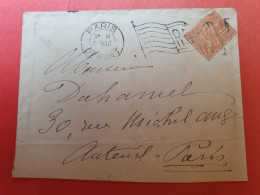 PARIS
Monsieur
Duhamel
30, rue Michel ange
Auteuil - Paris